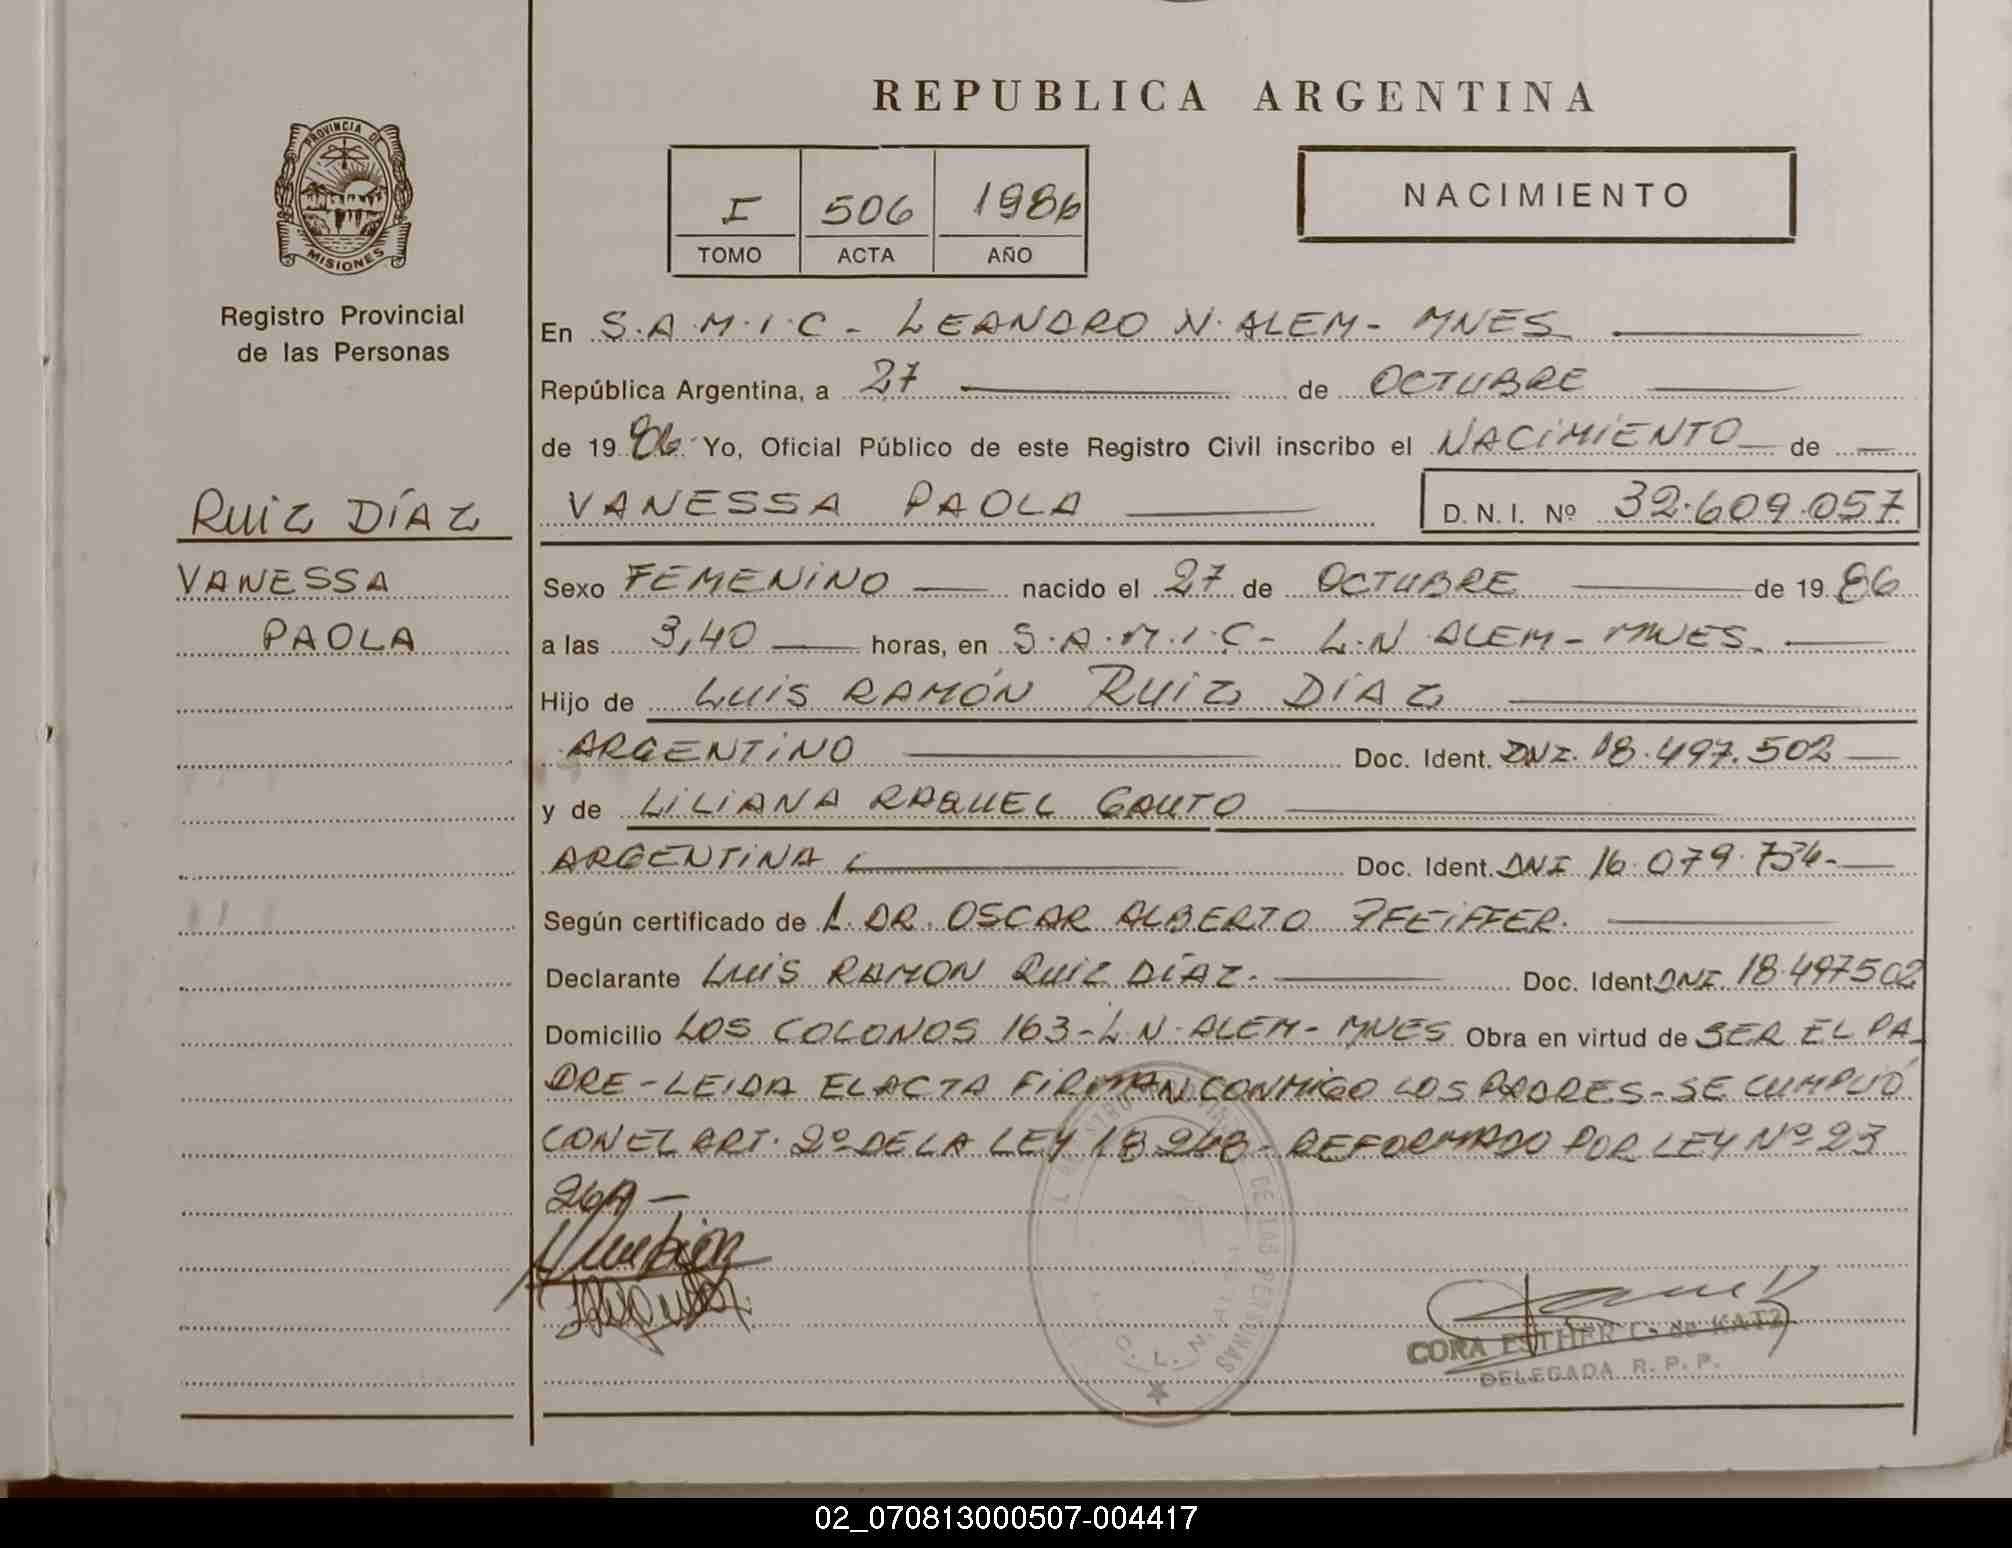 REPUBLICA ARGENTINA
PROVINCIA DE
MISIONES
Registro Provincial
de las Personas
I 506 1986
TOMO ACTA AÑO
NACIMIENTO
En S.A.M.I.C - LEANDRO N. ALEM - MNES
República Argentina, a 27 de OCTUBRE
de 1986 Yo, Oficial Público de este Registro Civil inscribo el NACIMIENTO de
RUIZ DÍAZ
VANESSA
PAOLA
VANESSA PAOLA D. N. I. Nº 32.609.057
Sexo FEMENINO nacido el 27 de OCTUBRE de 1986
a las 3,40 horas, en S.A.M.I.C - L.N ALEM - MNES.
Hijo de LUIS RAMÓN RUIZ DÍAZ
ARGENTINO Doc. Ident. DNI. 18.497.502
y de LILIANA RAQUEL GAUTO
ARGENTINA Doc. Ident. DNI 16.079.734-
Según certificado de L. DR. OSCAR ALBERTO PFEIFFER.
Declarante LUIS RAMON RUIZ DÍAZ. Doc. Ident DNI. 18.497502
Domicilio LOS COLONOS 163-L.N. ALEM - MNES Obra en virtud de SER EL PA_
DRE - LEIDA EL ACTA FIRMAN CONMIGO LOS PADRES - SE CUMPLIÓ
CON EL ART. 2º DE LA LEY 18248 - REFORMADO POR LEY Nº 23
264 -
DE LAS PERSONAS
CORA ESTHER C. de KATZ
DELEGADA R. P. P.
02_070813000507-004417